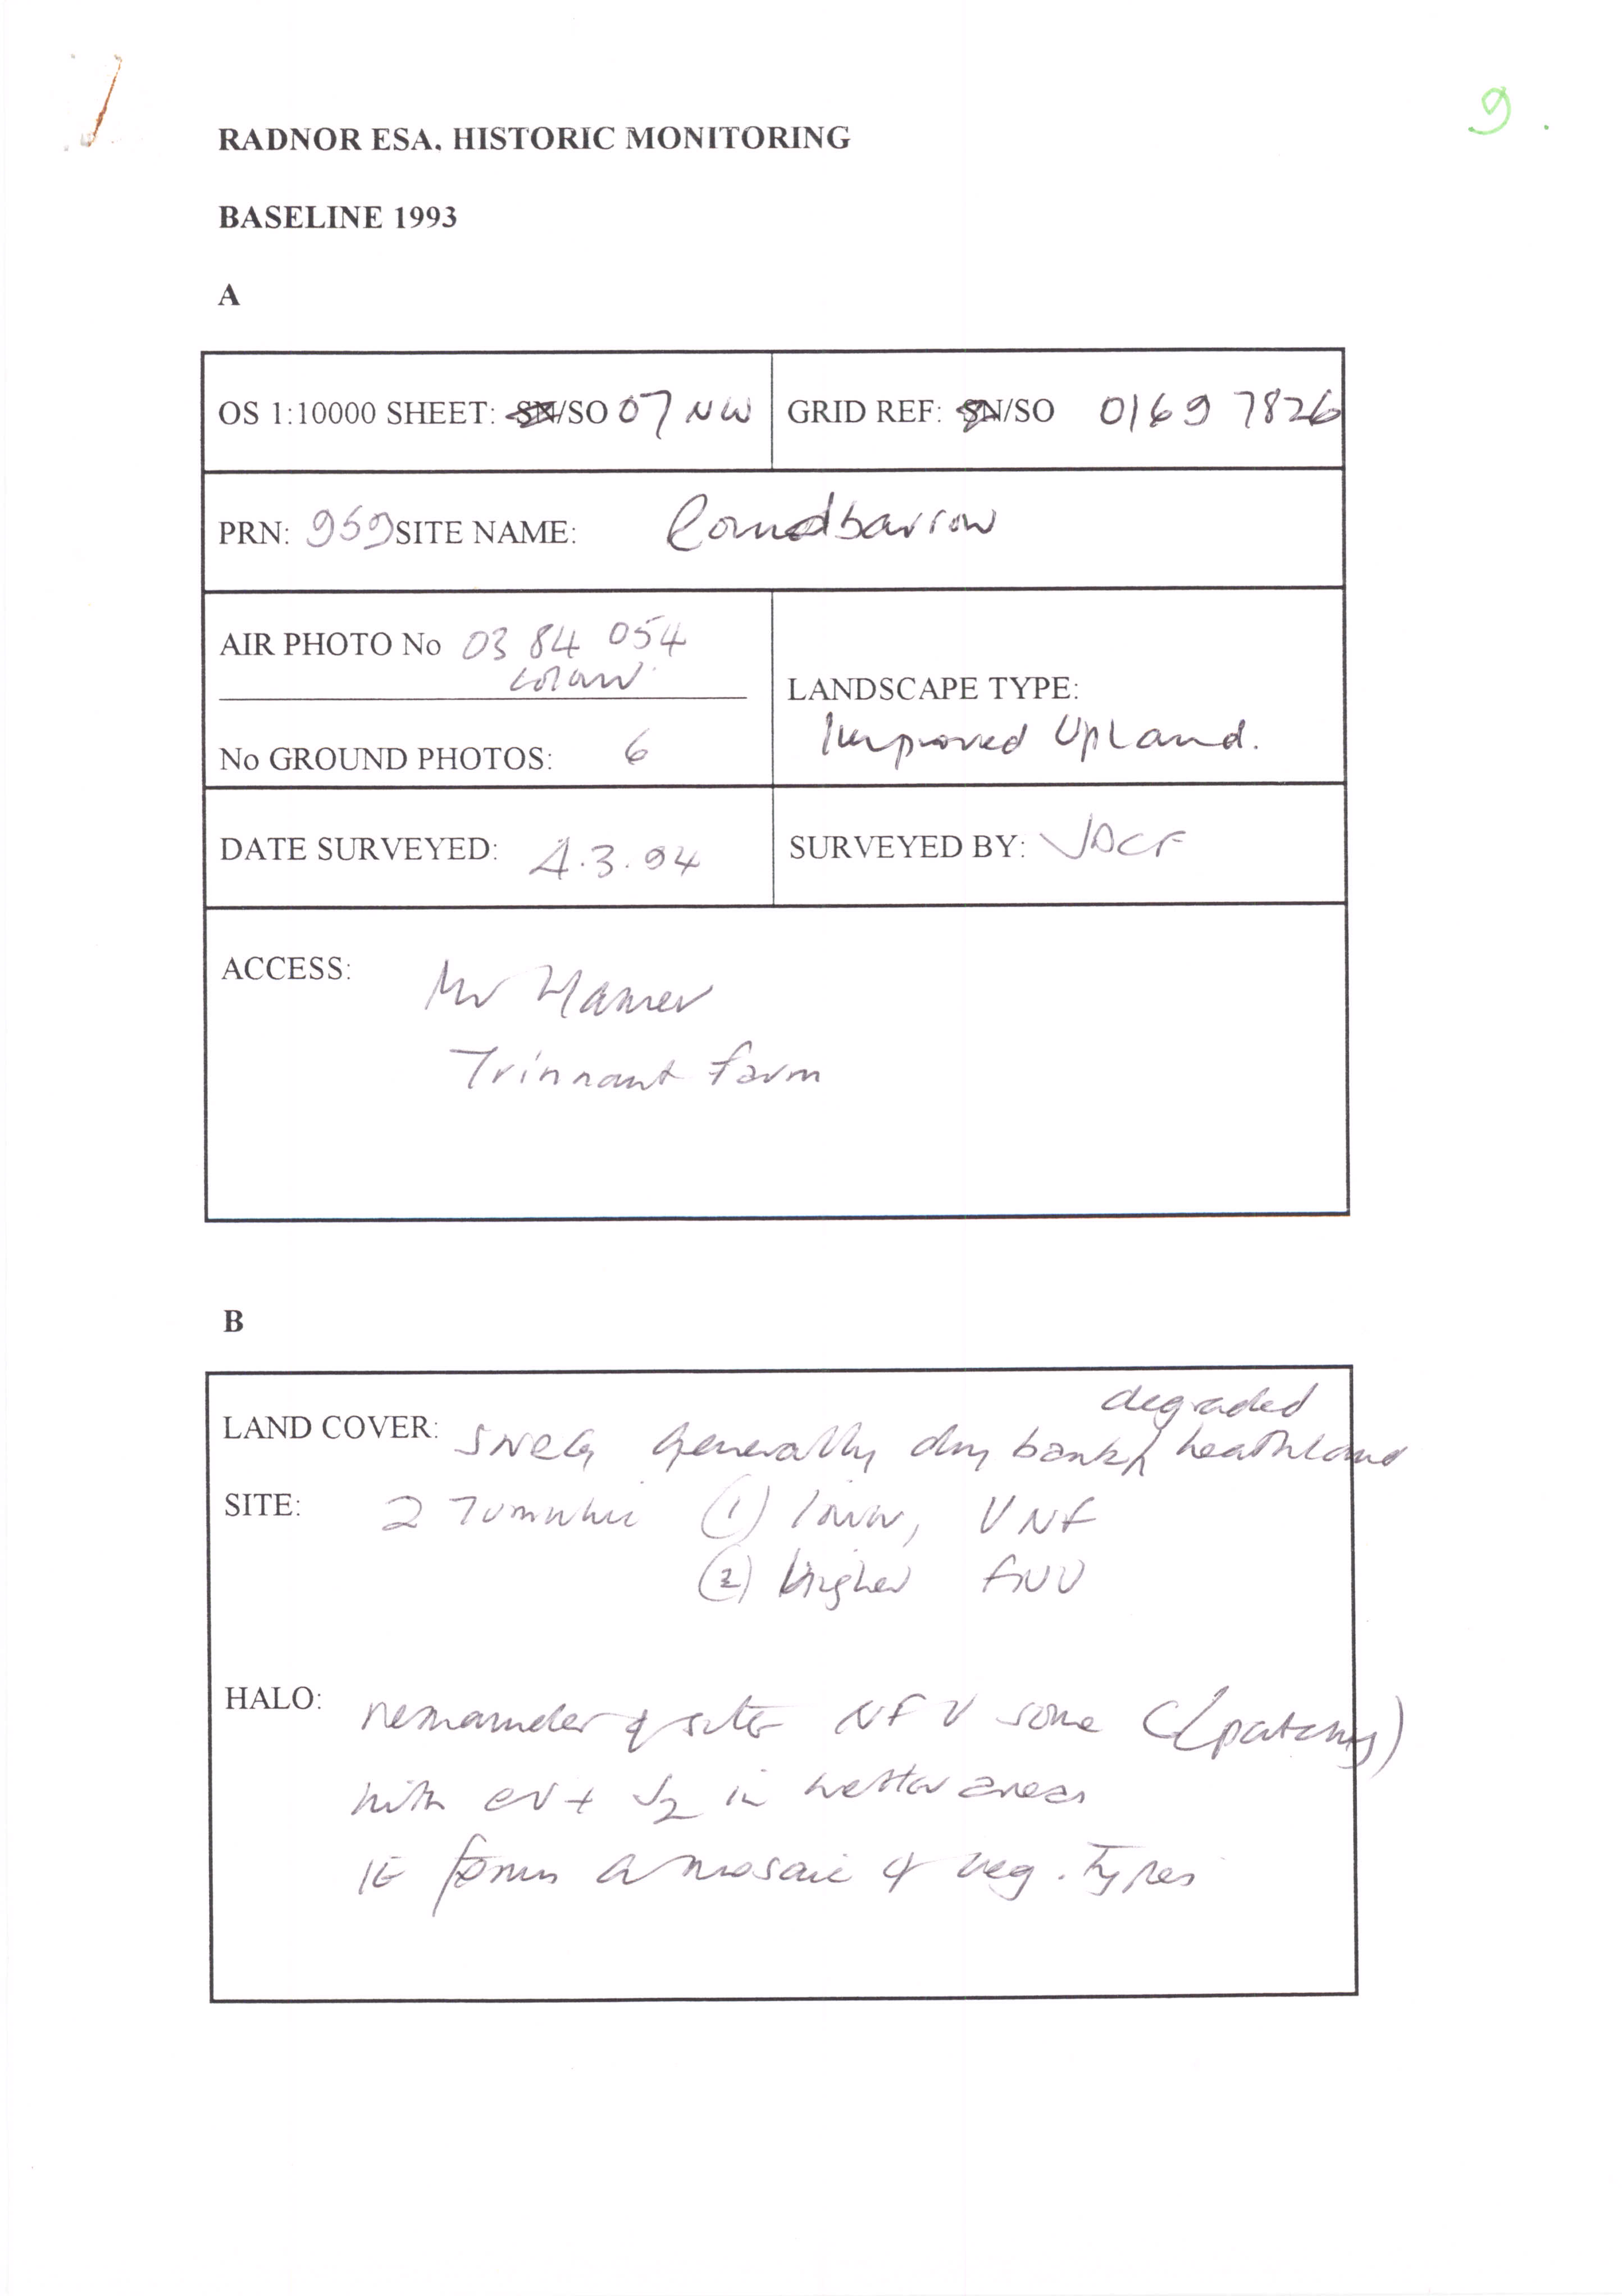 9.
RADNOR ESA. HISTORIC MONITORING
BASELINE 1993
A
OS 1:10000 SHEET: SN/SO 07 NW GRID REF: SN/SO 0169 7826
PRN: 959 SITE NAME: Roundbarrow
AIR PHOTO No 03 84 054
colour
LANDSCAPE TYPE:
Improved Upland.
No GROUND PHOTOS: 6
DATE SURVEYED: 4.3.94 SURVEYED BY: JDCF
ACCESS: Mr Hamer
Trinnant farm
B
degraded
LAND COVER: SNRG generally dry bank heathland
SITE: 2 Tumulii (1) lower, VNF
(2) higher FNV
HALO: remainder of site NFV some C (patchy)
with EN + J2 in wetter areas
IE forms a mosaic of veg. types